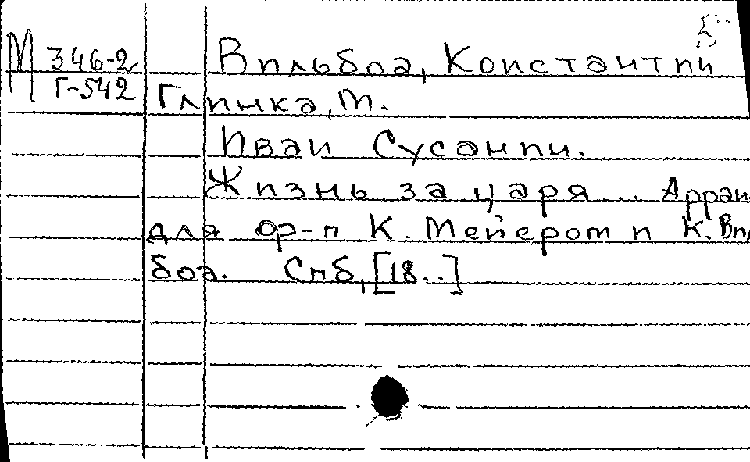 М 346-2 Вильбоа, Константин
Г-542 Глинка, М.
Иван Сусанин.
Жизнь за царя... Арран
для ор-п К. Мейером и К. Вил
боа. Спб, [18..]